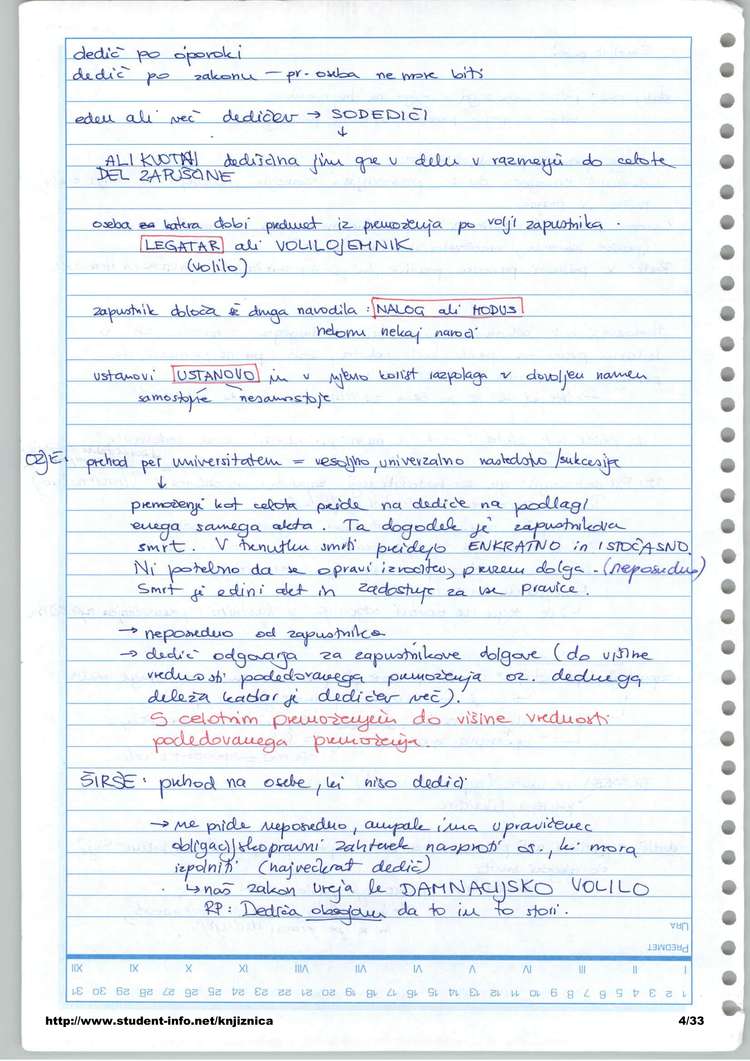 dedič po oporoki
dedič po zakonu – pr. oseba ne more biti
eden ali več dedičev → SODEDIČI
↓
ALIKVOTNI dediščina jim gre v delu v razmerju do celote
DEL ZAPUŠČINE
oseba katera dobi predmet iz premoženja po volji zapustnika.
LEGATAR ali VOLILOJEMNIK
(volilo)
zapustnik določa še druga navodila: NALOG ali MODUS
nekomu nekaj naroči
ustanovi USTANOVO in v njeno korist razpolaga v dovoljen namen
samostojne nesamostoje
OŽJE: prehod per universitatem = vesoljno, univerzalno nasledstvo /sukcesija
↓
premoženje kot celota preide na dediče na podlagi
enega samega akta. Ta dogodek je zapustnikova
smrt. V trenutku smrti preidejo ENKRATNO in ISTOČASNO.
Ni potrebno da se opravi izročitev, prevzem dolga. (neposredno)
Smrt je edini akt in zadostuje za vse pravice.
→ neposredno od zapustnika
→ dedič odgovarja za zapustnikove dolgove (do višine
vrednosti podedovanega premoženja oz. dednega
deleža kadar je dedičev več).
S celotnim premoženjem do višine vrednosti
podedovanega premoženja.
ŠIRŠE: prehod na osebe, ki niso dediči
→ ne pride neposredno, ampak ima upravičenec
obligacijskopravni zahtevek nasproti os., ki mora
izpolniti (največkrat dedič)
↳ naš zakon ureja le DAMNACIJSKO VOLILO
RP: Dediča obvezujem da to in to stori.
URA
PREDMET
I II III IV V VI VII VIII IX X XI XII
1 2 3 4 5 6 7 8 9 10 11 12 13 14 15 16 17 18 19 20 21 22 23 24 25 26 27 28 29 30 31
http://www.student-info.net/knjiznica 4/33